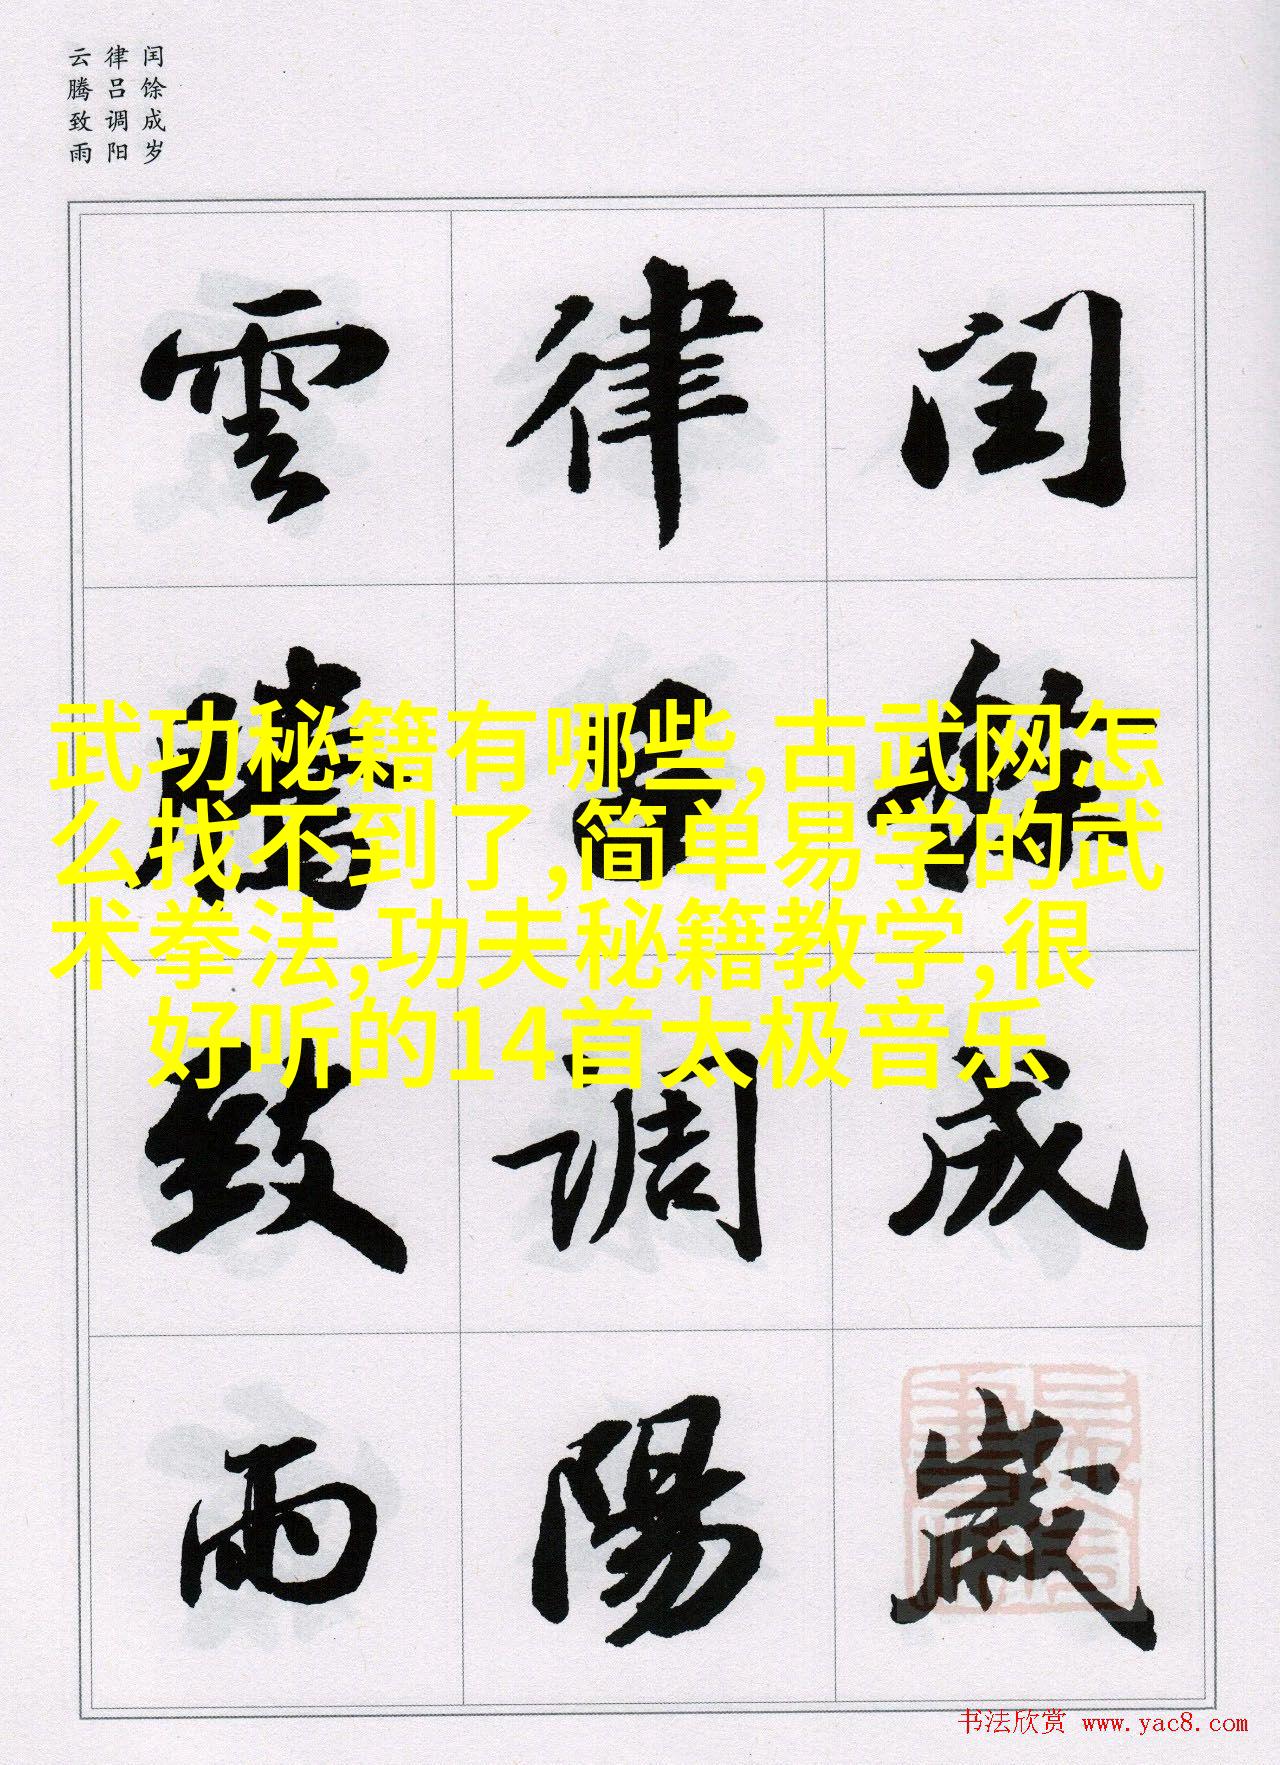 闰馀成岁
律吕调阳
云腾致雨
闰馀成歲
律吕調陽
雲騰致雨
武功秘籍有哪些,古武网怎
么找不到了,简单易学的武
术拳法,功夫秘籍教学,很
好听的14首太极音乐
书法欣赏 www.yac8.com